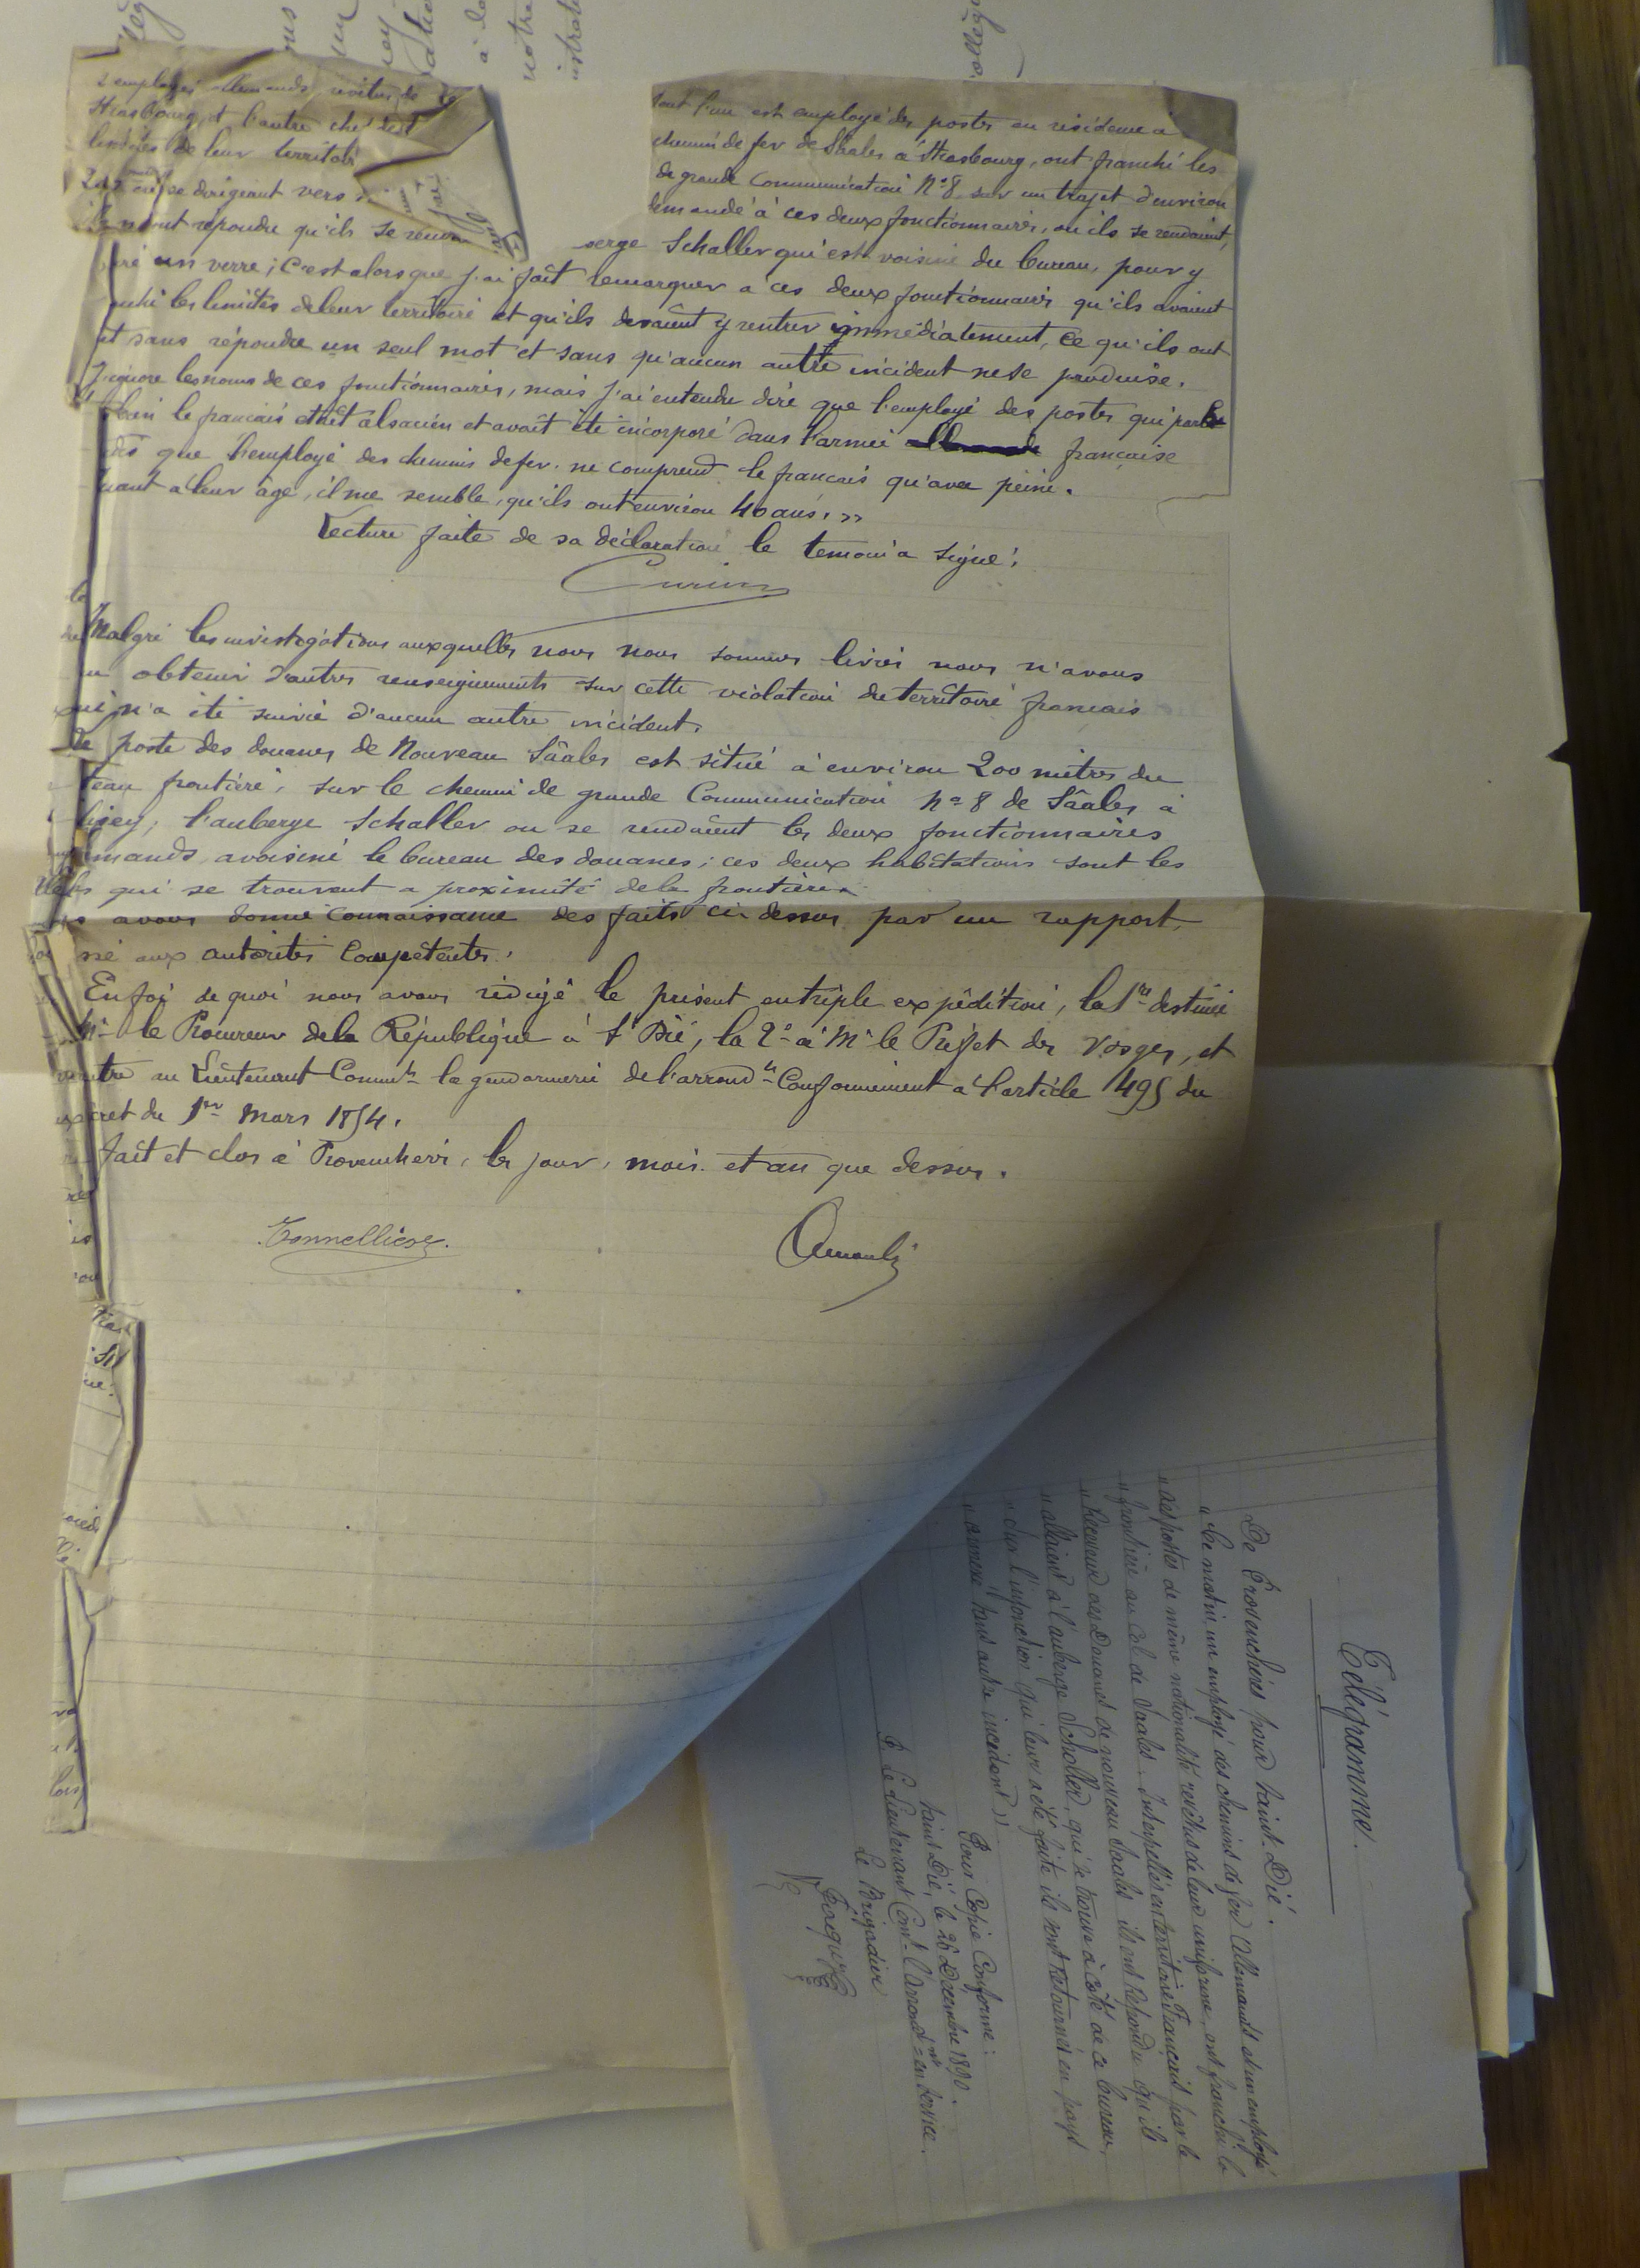 2 employés allemands revêtus de
dont l'un est employé des postes en résidence à
Strasbourg, et l'autre
chemin de fer de Sâales à Strasbourg, ont franchi les
limites de leur territoi
de grande Communication N° 8 sur un trajet d'environ
se dirigeant vers
demandé à ces deux fonctionnaires, où ils se rendaient,
m'ont répondu qu'ils se
berge Schaller qui est voisine du bureau, pour y
un verre; C'est alors que j'ai fait remarquer à ces deux fonctionnaires qu'ils avaient
nchi les limites de leur territoire et qu'ils devaient y rentrer immédiatement, ce qu'ils ont
it sans répondre un seul mot et sans qu'aucun autre incident ne se produise.
J'ignore les noms de ces fonctionnaires, mais j'ai entendu dire que l'employé des postes qui parle
bien le français était alsacien et avait été incorporé dans l'armée allemande française
dis que l'employé des chemins de fer ne comprend le français qu'avec peine.
uant à leur âge, il me semble, qu'ils ont environ 40 ans. »
Lecture faite de sa déclaration le témoin a signé.
Malgré les investigations auxquelles nous nous sommes livrés nous n'avons
pu obtenir d'autres renseignements sur cette violation du territoire français
qui n'a été suivie d'aucun autre incident.
Le poste des douanes de Nouveau Sâales est situé à environ 200 mètres du
teau frontière, sur le chemin de grande Communication N° 8 de Sâales à
l'auberge Schaller où se rendaient les deux fonctionnaires
emands avoisine le bureau des douanes; ces deux habitations sont les
qui se trouvent à proximité de la frontière.
avons donné connaissance des faits ci-dessus par un rapport
sé aux autorités Compétentes.
En foi de quoi nous avons rédigé le présent en triple expédition, la 1re destinée
Mr le Procureur de la République à St Dié, la 2e à Mr le Préfet des Vosges, et
au Lieutenant Commt la gendarmerie de l'arrondt Conformément à l'article 495 du
cret du 1er Mars 1854.
fait et clos à Provenchères, les jour, mois et an que dessus.
Tonnellier
Arnould
Télégramme.
De Provenchères pour Saint-Dié.
« Ce matin, un employé des chemins de fer Allemands et un employé
« des postes de même nationalité revêtus de leur uniforme, ont franchi la
« frontière au Col de Saales. Interpellés en territoire Français par le
« Receveur des Douanes de nouveau Saales ils ont répondu qu'ils
« allaient à l'auberge Scholler, qui se trouve à côté de ce bureau,
« sur l'injonction qui leur a été faite ils sont retournés en pays
« annexé sans autre incident »
Pour Copie Conforme:
Saint Dié, le 26 Décembre 1890.
P. Le Lieutenant Comt l'Arrondt en service.
Le Brigadier